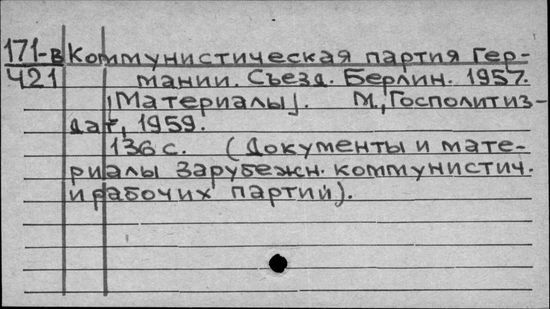 171-в Коммунистическая партия Гер-
421 мании. Съезд. Берлин. 1957.
[Материалы]. М., Госполитиз-
дат, 1959.
136 с. (Документы и мате-
риалы зарубежн. коммунистич.
и рабочих партий).